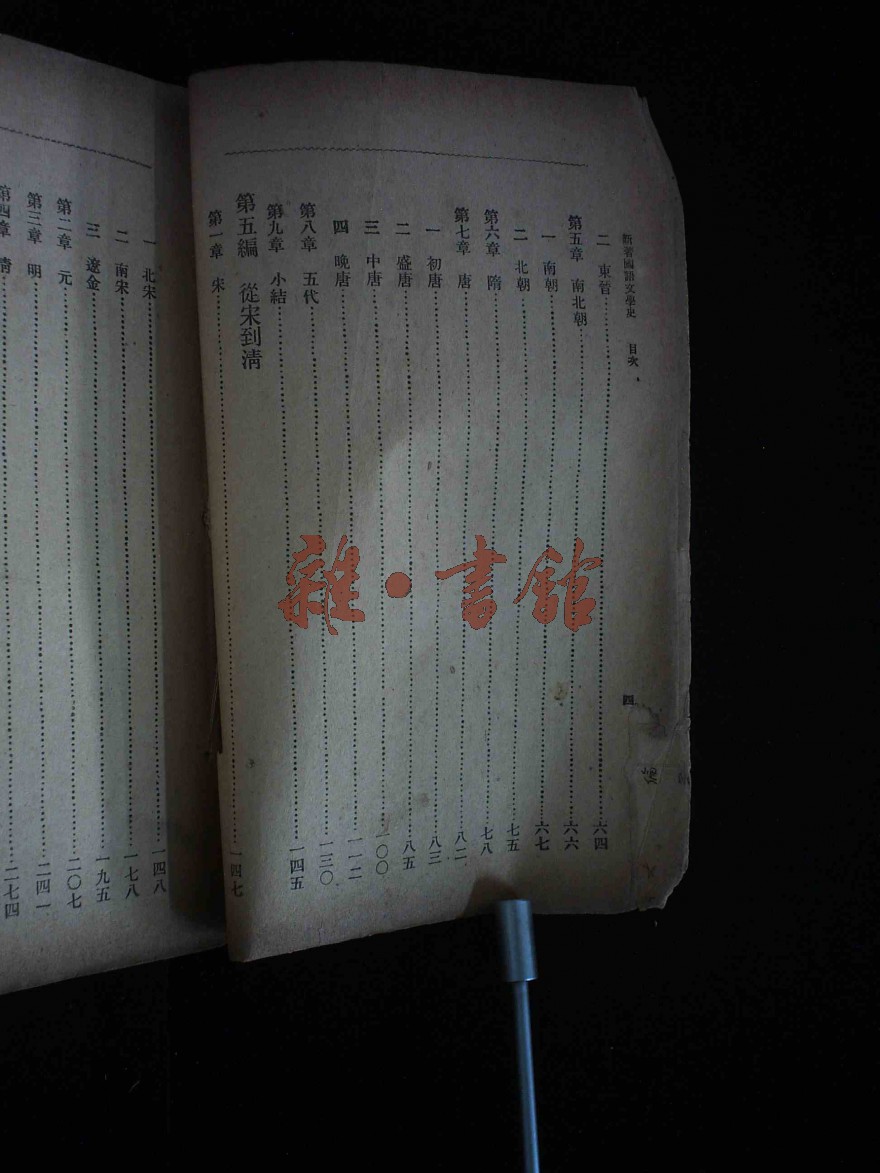 新著國語文學史 目次 四
二 東晉……六四
第五章 南北朝……六六
一 南朝……六七
二 北朝……七五
第六章 隋……七八
第七章 唐……八二
一 初唐……八三
二 盛唐……八五
三 中唐……一〇〇
四 晚唐……一一二
第八章 五代……一三〇
第九章 小結……一四五
第五編 從宋到淸
第一章 宋……一四七
一 北宋……一四八
二 南宋……一七八
三 遼金……一九五
第二章 元……二〇七
第三章 明……二四一
第四章 淸……二七四
雜·書館